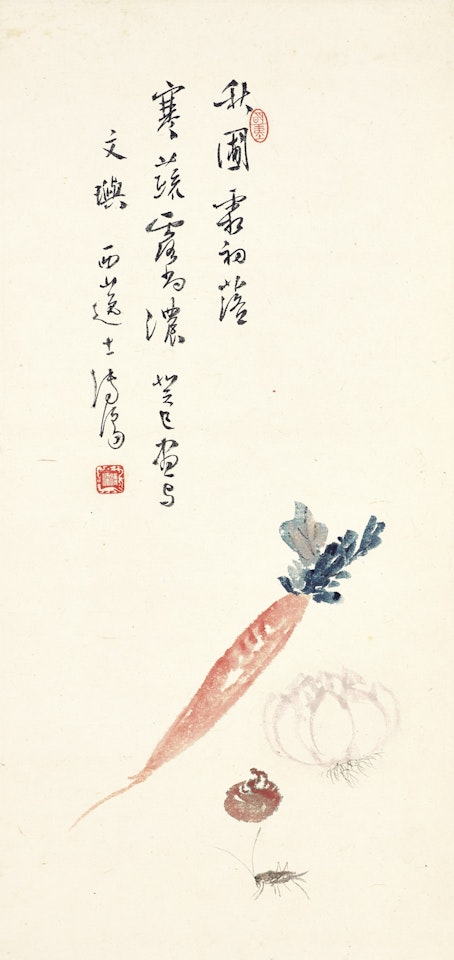 秋圃霜初落
寒蔬露尚濃 癸巳画与
文璵 西山逸士溥儒